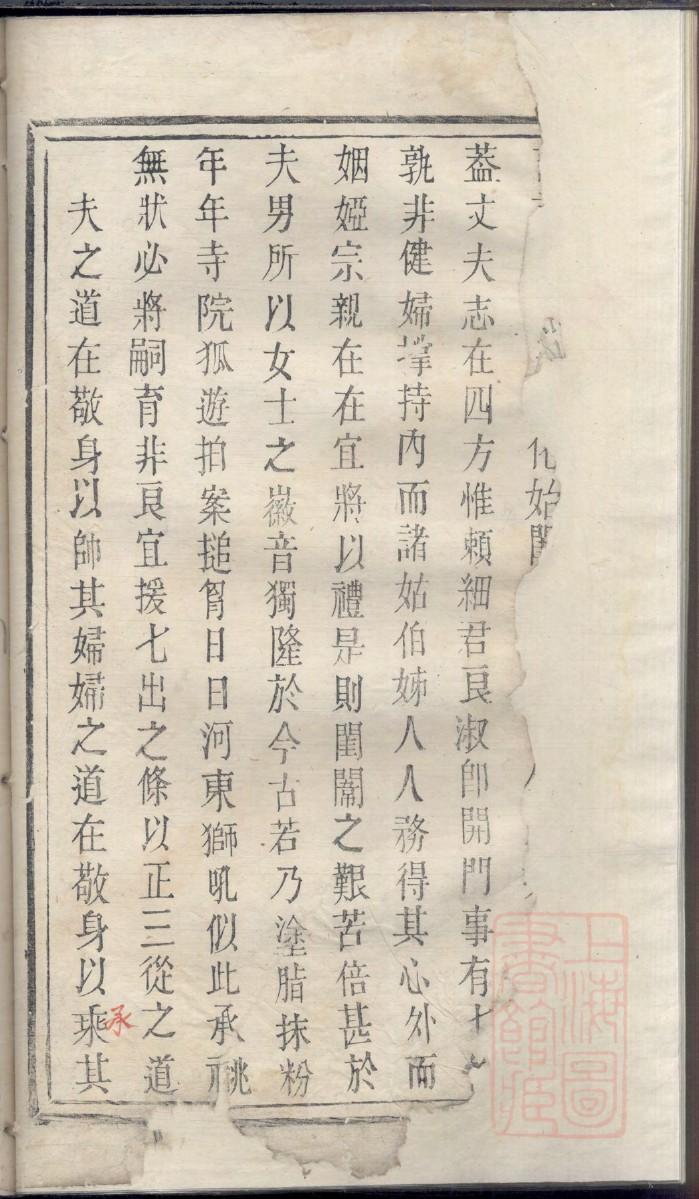 化始閨
葢丈夫志在四方惟頼細君良淑即開門事有十
孰非健婦撑持内而諸姑伯姊人人務得其心外而
姻婭宗親在在宜將以禮是則閨閫之艱苦倍甚於
夫男所以女士之徽音獨隆於今古若乃塗脂抹粉
年年寺院狐遊拍案搥胷日日河東獅吼似此承祧
無狀必將嗣育非良宜援七出之條以正三從之道
夫之道在敬身以帥其婦婦之道在敬身以乘其
承
上海圖
書館藏